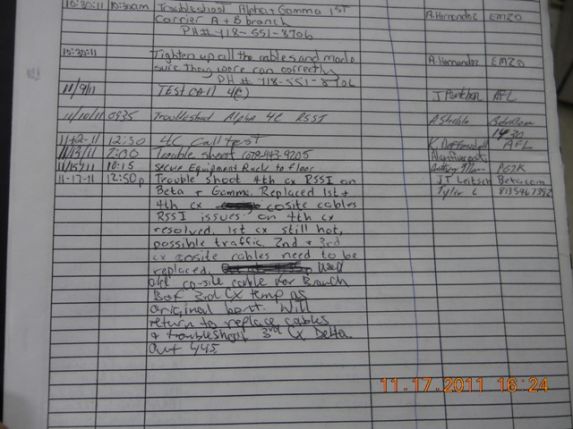 10:30:11 10:30am Troubleshoot Alpha + Gamma 1st A. Hernandez EMZO
Carrier A + B branch
PH# 718-551-8706
10:30:11 Tighten up all the cables and made A. Hernandez EMZO
sure they were ran correctly
PH # 718-551-8706
11/9/11 TEST CALL 4C AFL
11/10/11 0935 Troubleshoot Alpha 4C RSSI
11-12-11 12:30 4C Call test AFL
11/13/11 2:00 Trouble shoot
11/15/11 10:15 Secure Equipment Rack to floor
11-17-11 12:50p Trouble shoot 4th cx RSSI on JT Leitsch Betacom
Beta + Gamma. Replaced 1st + Tyler L
4th cx cosite cables
RSSI issues, on 4th cx
resolved. 1st cx still hot,
possible traffic. 2nd + 3rd
cx cosite cables need to be
replaced. Used
old co-site cable for Branch
B of 3rd CX temp as
original bent. Will
return to replace cables
+ troubleshoot 3rd Cx Delta.
Out 445
11.17.2011 16:24